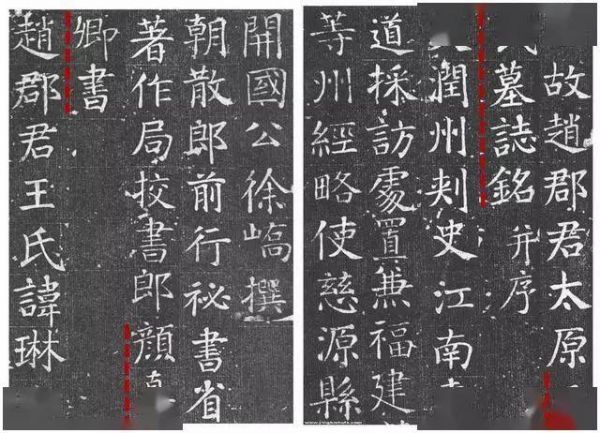 故趙郡君太原
墓誌銘并序
潤州刾史江南
道採訪處置兼福建
等州經略使慈源縣
開國公徐嶠撰
朝散郎前行祕書省
著作局挍書郎顏
卿書
趙郡君王氏諱琳